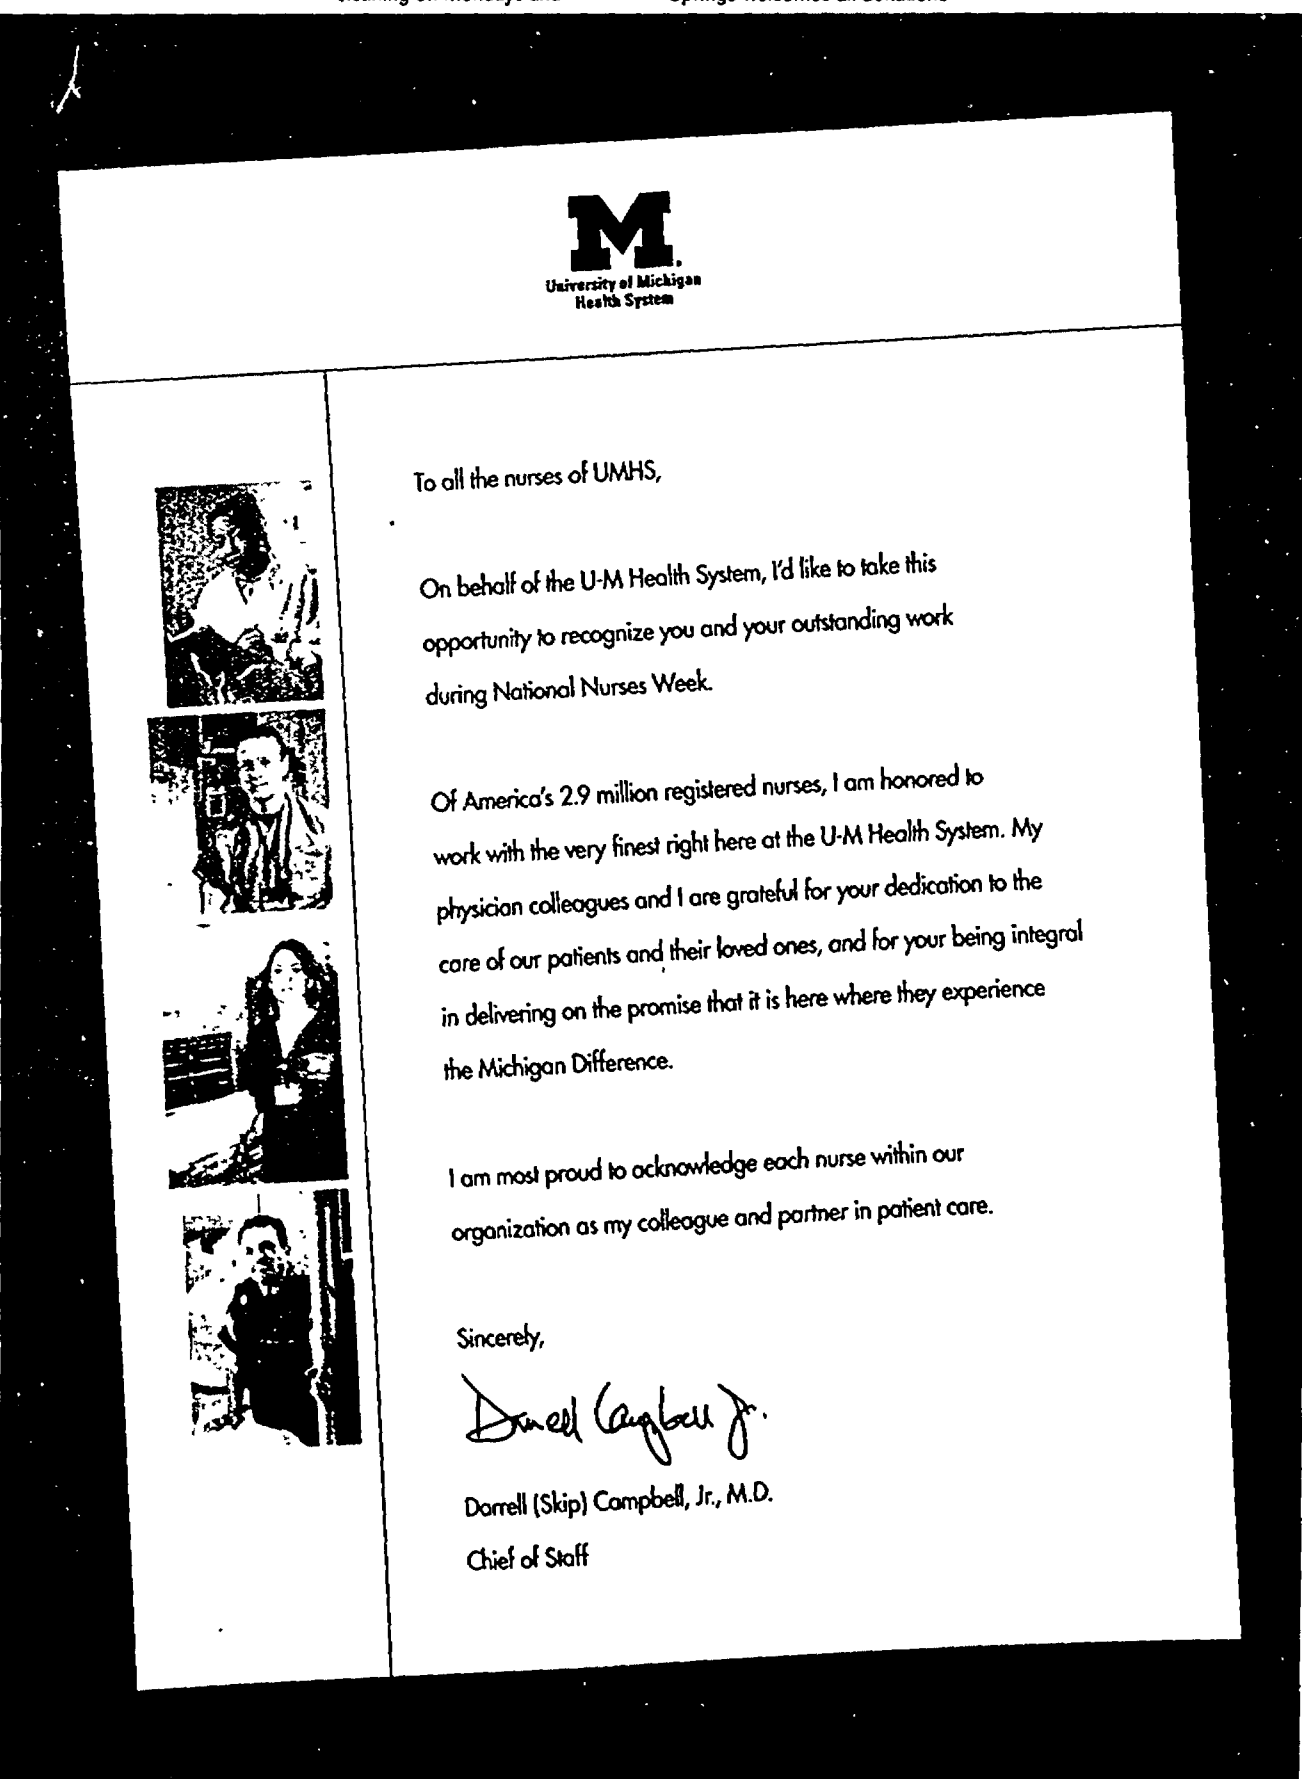 M
University of Michigan
Health System
To all the nurses of UMHS,
On behalf of the U-M Health System, I'd like to take this
opportunity to recognize you and your outstanding work
during National Nurses Week.
Of America's 2.9 million registered nurses, I am honored to
work with the very finest right here at the U-M Health System. My
physician colleagues and I are grateful for your dedication to the
care of our patients and their loved ones, and for your being integral
in delivering on the promise that it is here where they experience
the Michigan Difference.
I am most proud to acknowledge each nurse within our
organization as my colleague and partner in patient care.
Sincerely,
Darrell Campbell Jr.
Darrell (Skip) Campbell, Jr., M.D.
Chief of Staff